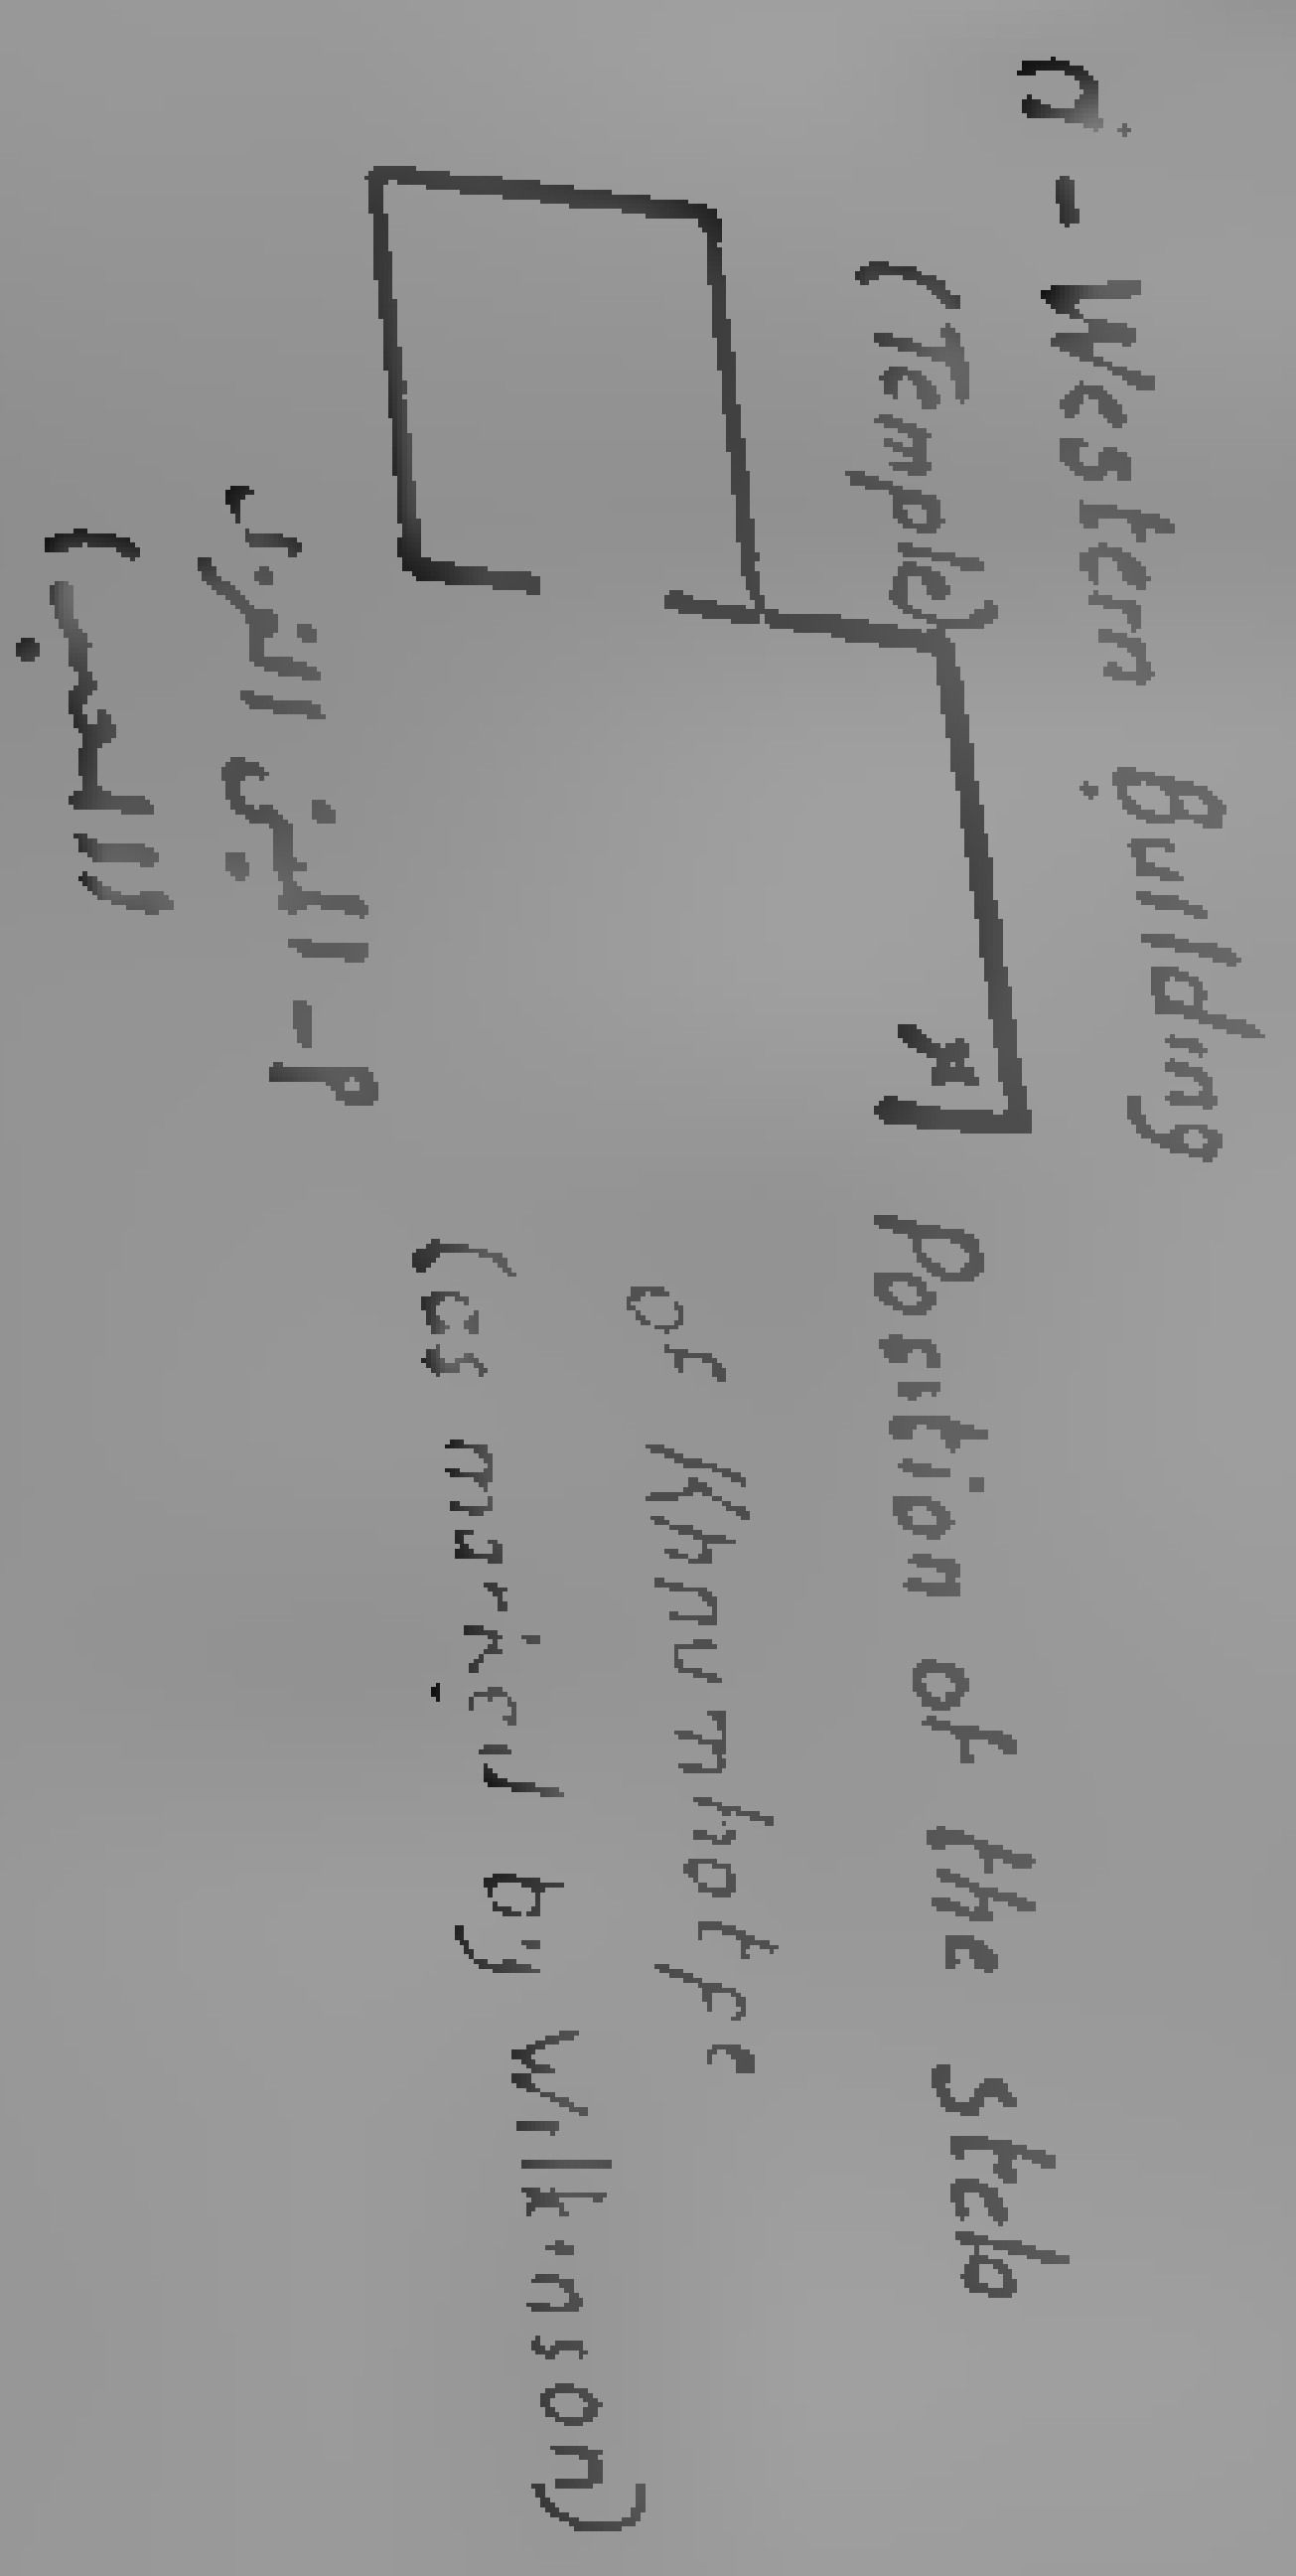 a - Western Building
(Temple)
Position of the Steb
of Khnumhotpe
(as marked by Wilkinson)
م - المبنى الغربى
(المعبد)